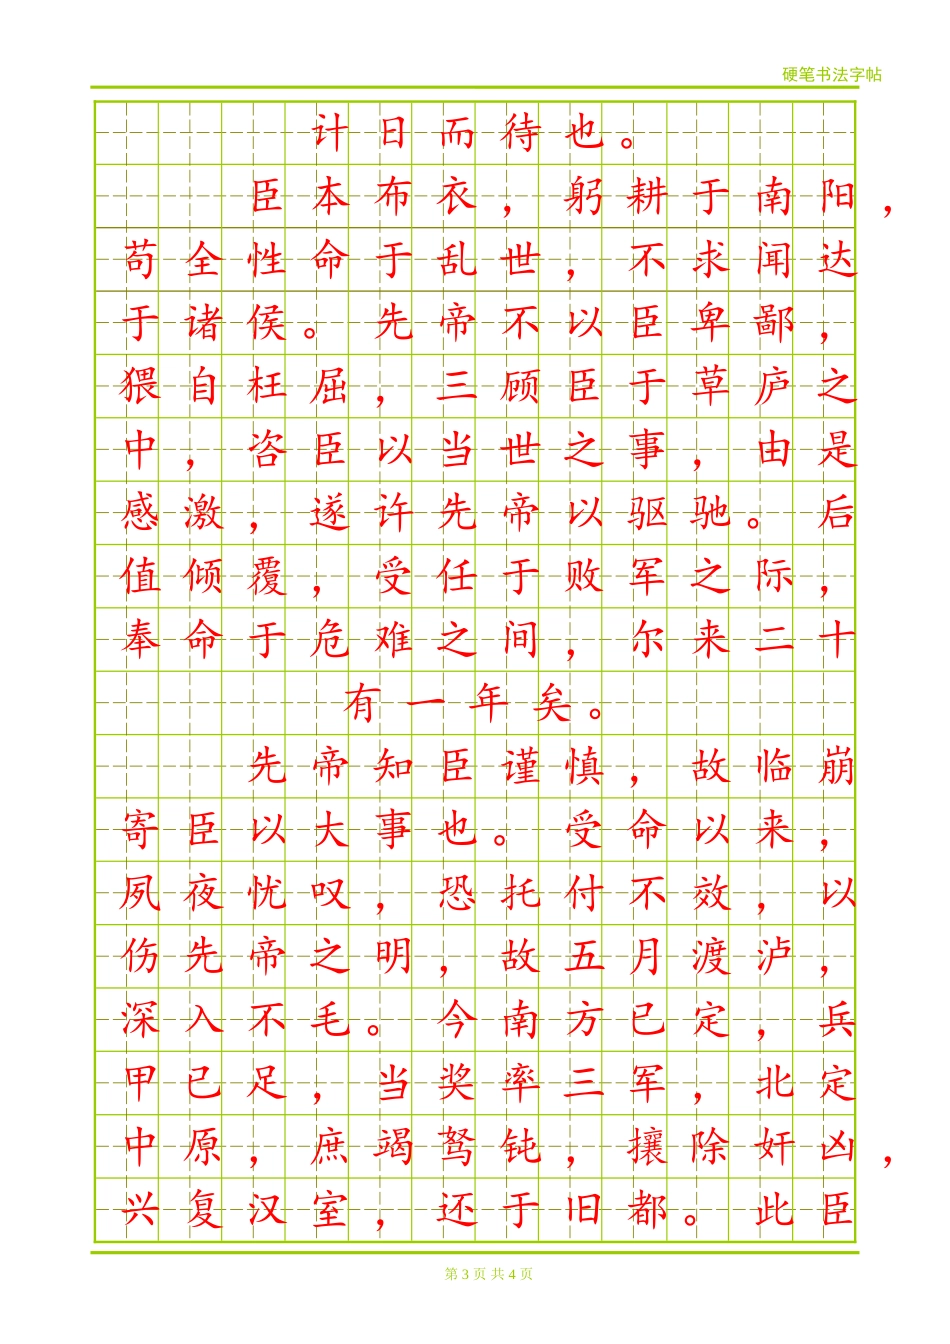 硬笔书法字帖
计日而待也。
臣本布衣，躬耕于南阳，
苟全性命于乱世，不求闻达
于诸侯。先帝不以臣卑鄙，
猥自枉屈，三顾臣于草庐之
中，咨臣以当世之事，由是
感激，遂许先帝以驱驰。后
值倾覆，受任于败军之际，
奉命于危难之间，尔来二十
有一年矣。
先帝知臣谨慎，故临崩
寄臣以大事也。受命以来，
夙夜忧叹，恐托付不效，以
伤先帝之明，故五月渡泸，
深入不毛。今南方已定，兵
甲已足，当奖率三军，北定
中原，庶竭驽钝，攘除奸凶，
兴复汉室，还于旧都。此臣
第 3 页 共 4 页